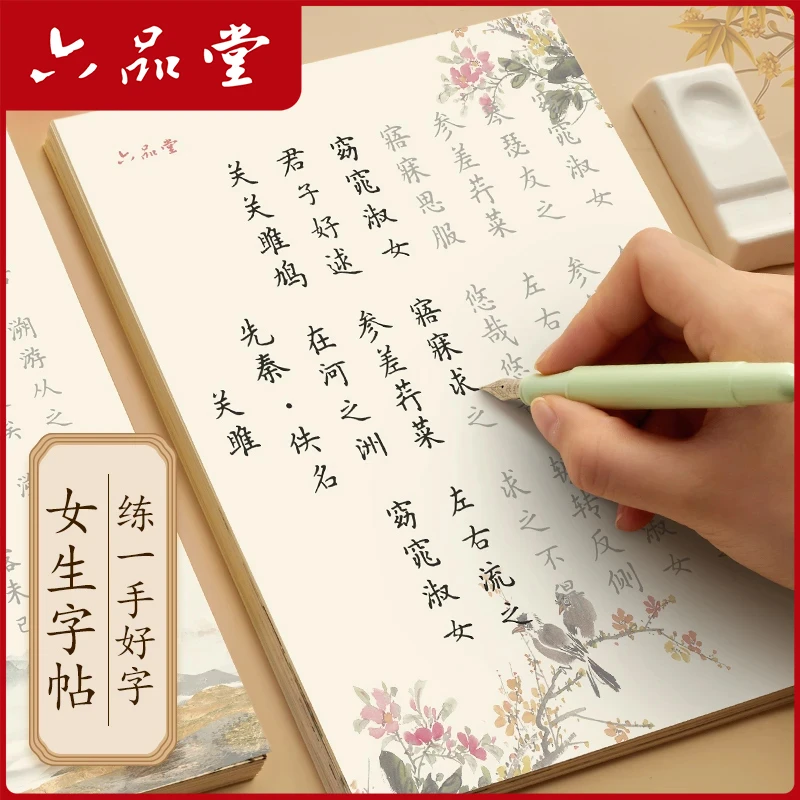 六品堂
六品堂
关关雎鸠
君子好逑
窈窕淑女
寤寐思服
参差荇菜
琴瑟友之
窈窕淑女
关雎
先秦·佚名
在河之洲
参差荇菜
寤寐求之
悠哉悠
左右
参
窈窕淑女
左右流之
求之不得
转反侧
淑女
溯游从之
未已
练一手好字
女生字帖